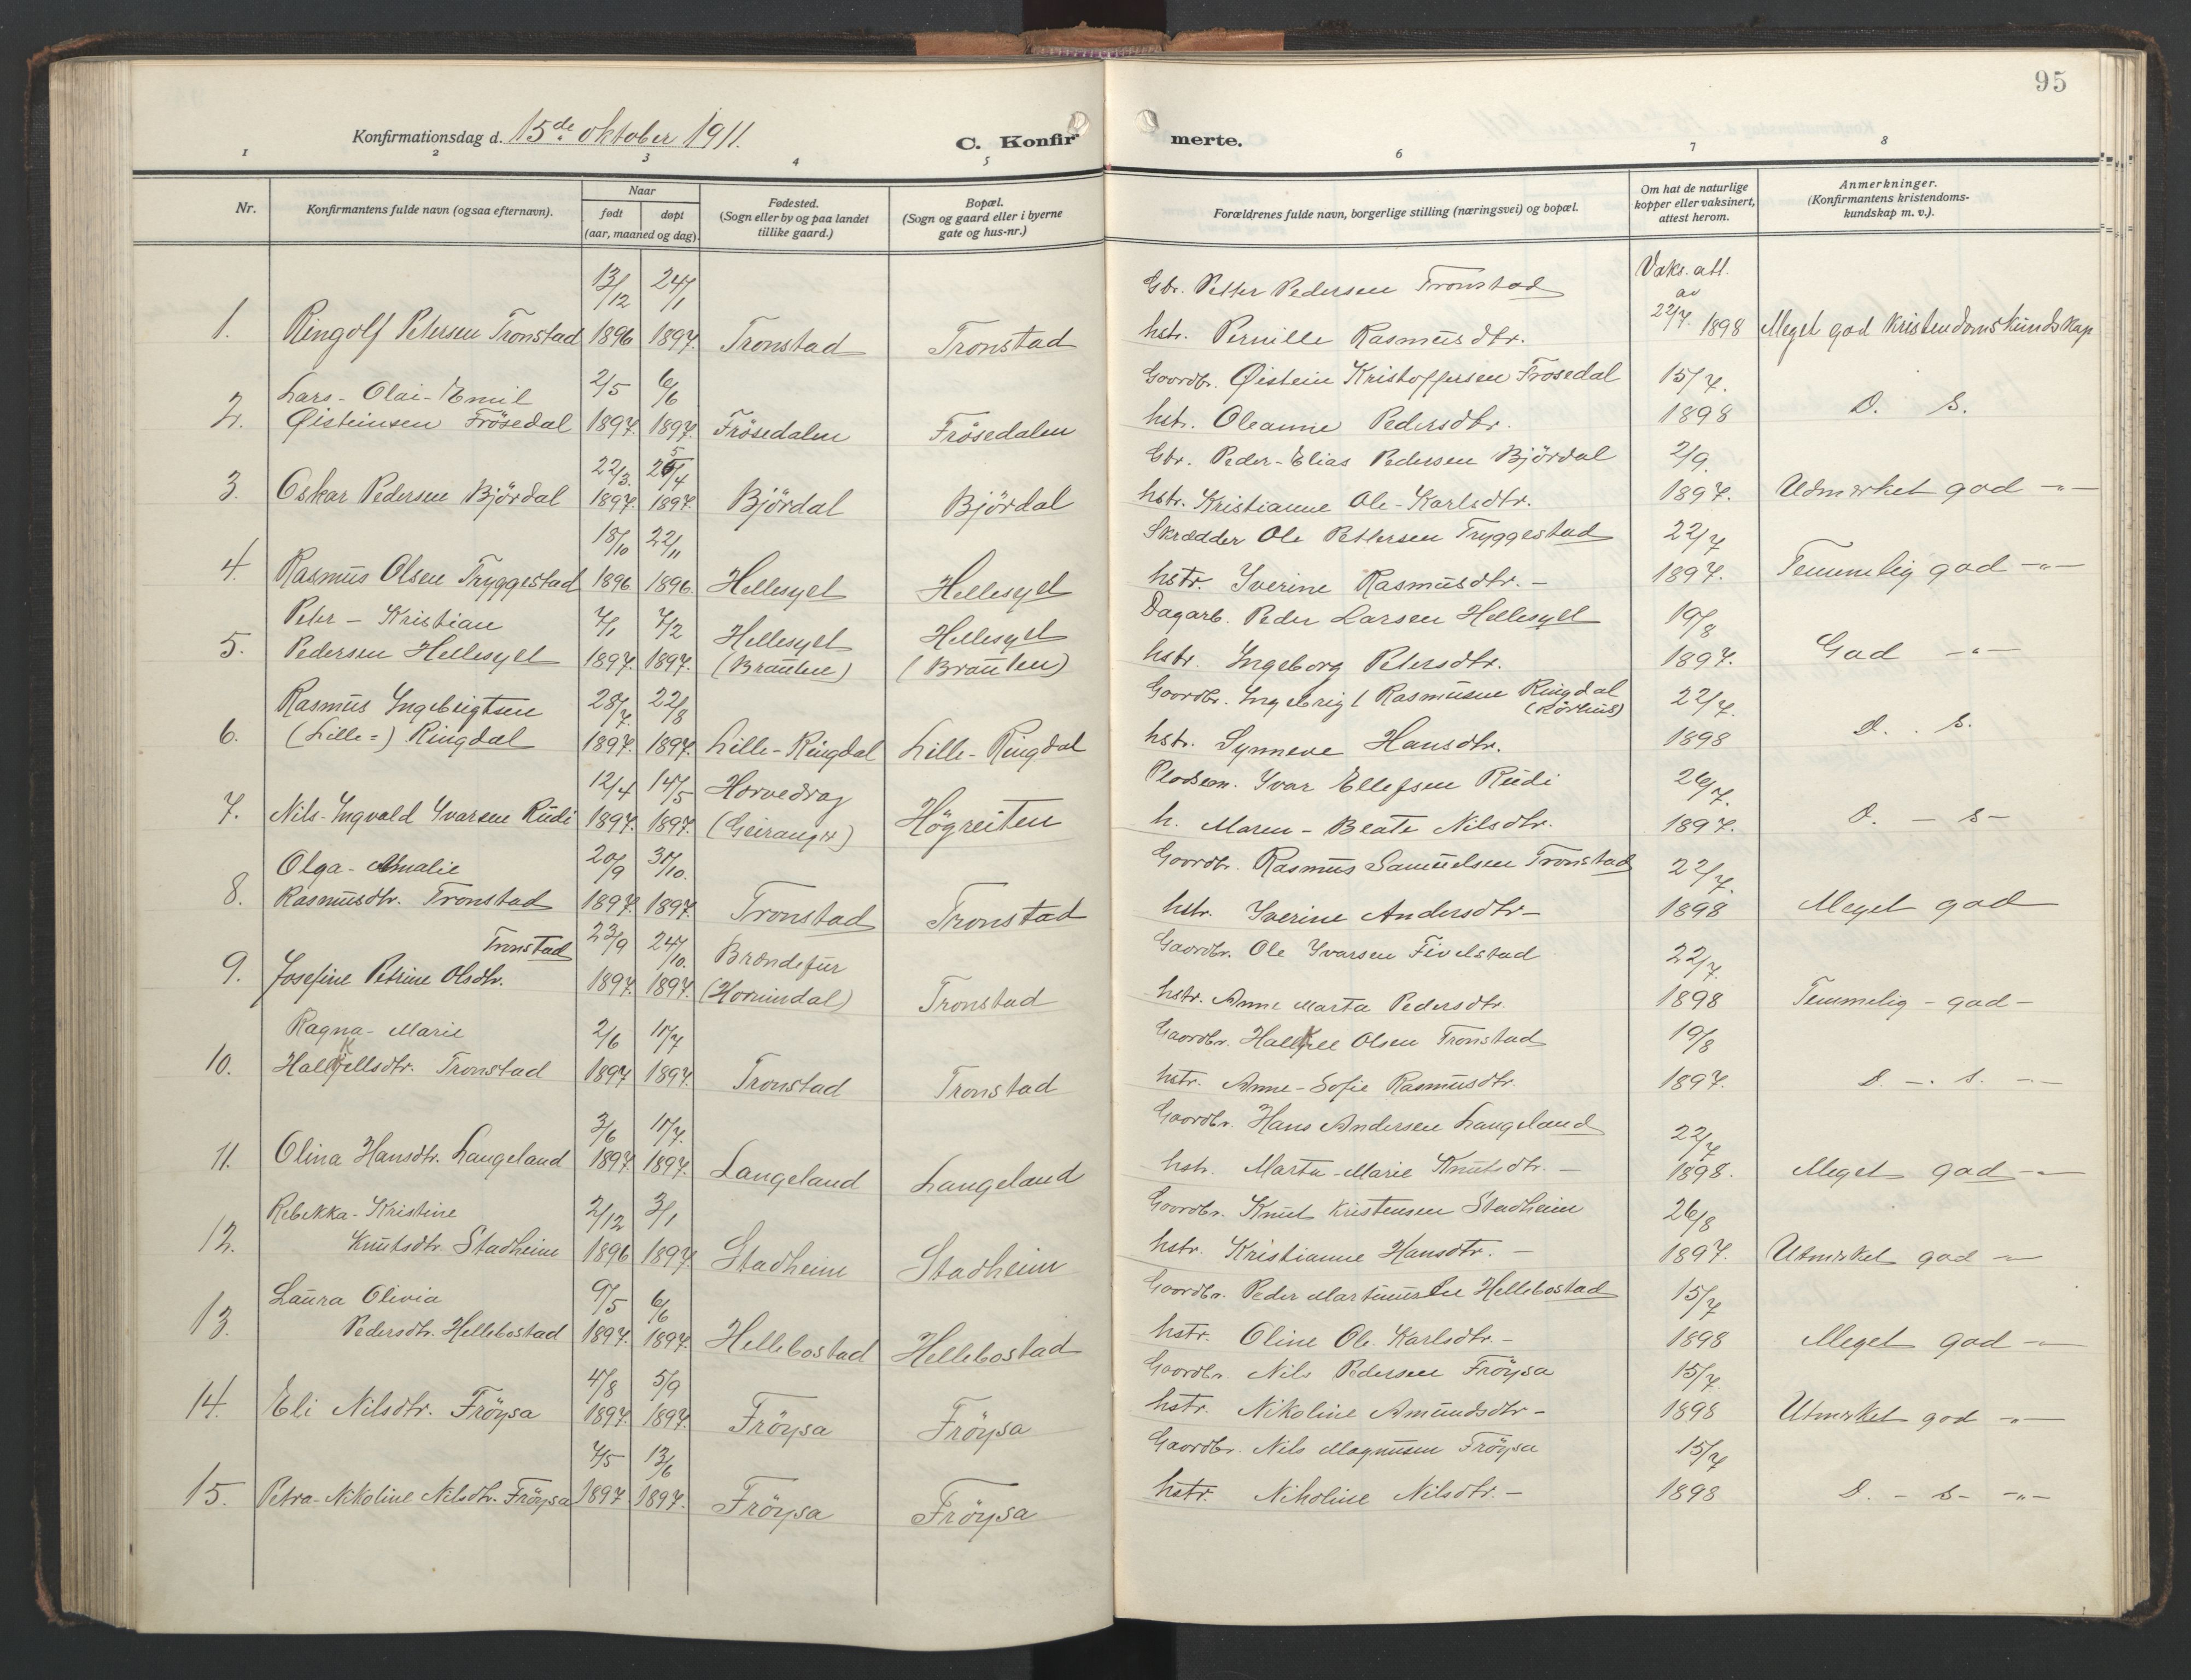 95
Konfirmationsdag d. 15de oktober 1911.
C. Konfirmerte.
1 2 3 4 5 6 7 8
Nr.
Konfirmantens fulde navn (ogsaa efternavn).
Naar
født døpt
(aar, maaned og dag)
Fødested.
(Sogn eller by og paa landet
tillike gaard.)
Bopæl.
(Sogn og gaard eller i byerne
gate og hus-nr.)
Forældrenes fulde navn, borgerlige stilling (næringsvei) og bopæl.
Om hat de naturlige
kopper eller vaksinert,
attest herom.
Anmerkninger.
(Konfirmantens kristendoms-
kundskap m. v.).
13/12 24/1 Gbr. Petter Pedersen Tronstad Vaks. att.
av
1. Ringolf Petersen Tronstad 1896 1897. Tronstad Tronstad hstr. Pernille Rasmusdtr. 22/7. 1898 Meget god Kristendomskundskap
Lars-Olai-Emil 2/5 6/6 Gaardbr. Øistein Kristoffersen Frøsedal 15/7.
2. Øisteinsen Frösedal 1897. 1897. Frösedalen Frösedalen hstr. Oleanne Pedersdtr. 1898 D. S.
22/3. 25/4 Gbr. Peder-Elias Pedersen Björdal 2/9.
3. Oskar Pedersen Björdal 1897. 1897. Björdal Björdal hstr. Kristianne Ole-Karlsdtr. 1897. Udmerket god -"-
18/10 22/11 Skrædder Ole Pettersen Tryggestad 22/7
4. Rasmus Olsen Tryggestad 1896. 1896. Hellesylt Hellesylt hstr. Iverine Rasmusdtr. - 1897. Temmelig god -"-
Peter-Kristian 7/1 7/2 Hellesylt Hellesylt Dagarb. Peder Larsen Hellesylt 19/8
5. Pedersen Hellesylt 1897. 1897. (Brauten) (Brauten) hstr. Ingeborg Petersdtr. 1897. God -"-
Rasmus Ingebrigtsen 28/7. 22/8 Gaardbr. Ingebrigt Rasmusen Ringdal (Körhus) 22/7.
6. (Lille=) Ringdal 1897. 1897. Lille-Ringdal Lille-Ringdal hstr. Synneve Hansdtr. 1898 D. S.
12/4 14/5 Horvedrag Pladsem. Ivar Ellefsen Rudi 26/7.
7. Nils-Ingvald Ivarsen Rudi 1897. 1897. (Geiranger) Högreiten h. Maren-Beate Nilsdtr. 1897. D. - S-
Olga-Amalie 20/9 31/10. Gaardbr. Rasmus Samuelsen Tronstad 22/7.
8. Rasmusdtr. Tronstad 1897 1897. Tronstad Tronstad hstr. Iverine Andersdtr- 1898 Meget god
Tronstad 23/9 24/10. Brændefur Gaardbr. Ole Ivarsen Fivelstad 22/7.
9. Josefine Petrine Olsdtr. 1897. 1897. (Hornindal) Tronstad hstr. Anne Marta Pedersdtr. 1898 Temmelig - god -
Ragna-Marie 2/6 11/7 Gaardbr. Hallkell Olsen Tronstad 19/8
10. Hallkellsdtr. Tronstad 1897 1897. Tronstad Tronstad hstr. Anne-Sofie Rasmusdtr. 1897. D. - S. -
3/6 11/7. Gaardbr. Hans Andersen Langeland 22/7
11. Olina Hansdtr. Langeland 1897. 1897. Langeland Langeland hstr. Marta-Marie Knutsdtr. - 1898. Meget god -"-
Rebekka-Kristine 2/12 3/1 Gaardbr. Knut Kristensen Stadheim 26/8
12. Knutsdtr Stadheim 1896 1897 Stadheim Stadheim hstr. Kristianne Hansdtr. - 1897. Utmerket god -
Laura Olivia 9/5 6/6 Gaardbr. Peder Martinusen Hellebostad 15/7
13. Pedersdtr. Hellebostad 1897. 1897. Hellebostad Hellebostad hstr. Oline Ole Karlsdtr. - 1898 Meget god -
4/8 5/9 Gaardbr. Nils Pedersen Fröysa 15/7
14. Eli Nilsdtr. Fröysa 1897. 1897. Fröysa Fröysa hstr. Nikoline Amundsdtr - 1898 Utmerket god -"-
7/5 13/6 Gaardbr. Nils Magnusen Fröysa 15/7
15. Petra-Nikoline Nilsdtr. Fröysa 1897 1897. Fröysa Fröysa hstr. Nikoline Nilsdtr. - 1898 D. - S- -"-